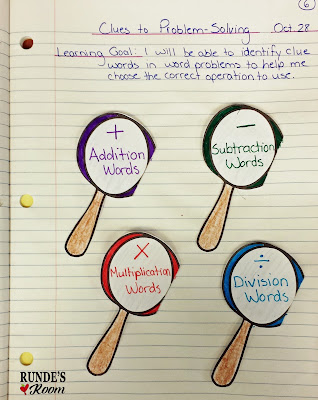 6
Clues to Problem-Solving Oct. 28
Learning Goal: I will be able to identify clue
words in word problems to help me
choose the correct operation to use.
+
Addition
Words
−
Subtraction
Words
×
Multiplication
Words
÷
Division
Words
RUNDE'S
Room